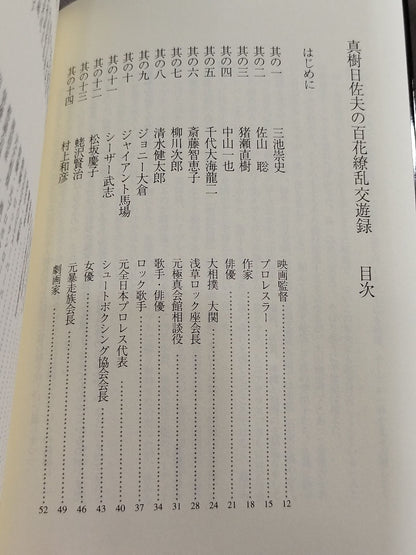 真樹日佐夫の百花繚乱交遊録　目次
はじめに
其の一　三池崇史　映画監督 12
其の二　佐山　聡　プロレスラー 15
其の三　猪瀬直樹　作家 18
其の四　中山一也　俳優 21
其の五　千代大海龍二　大相撲　大関 24
其の六　斎藤智恵子　浅草ロック座会長 28
其の七　柳川次郎　元極真会館相談役 31
其の八　清水健太郎　歌手・俳優 34
其の九　ジョニー大倉　ロック歌手 37
其の十　ジャイアント馬場　元全日本プロレス代表 40
其の十一　シーザー武志　シュートボクシング協会会長 43
其の十二　松坂慶子　女優 46
其の十三　蛯沢賢治　元暴走族会長 49
其の十四　村上和彦　劇画家 52